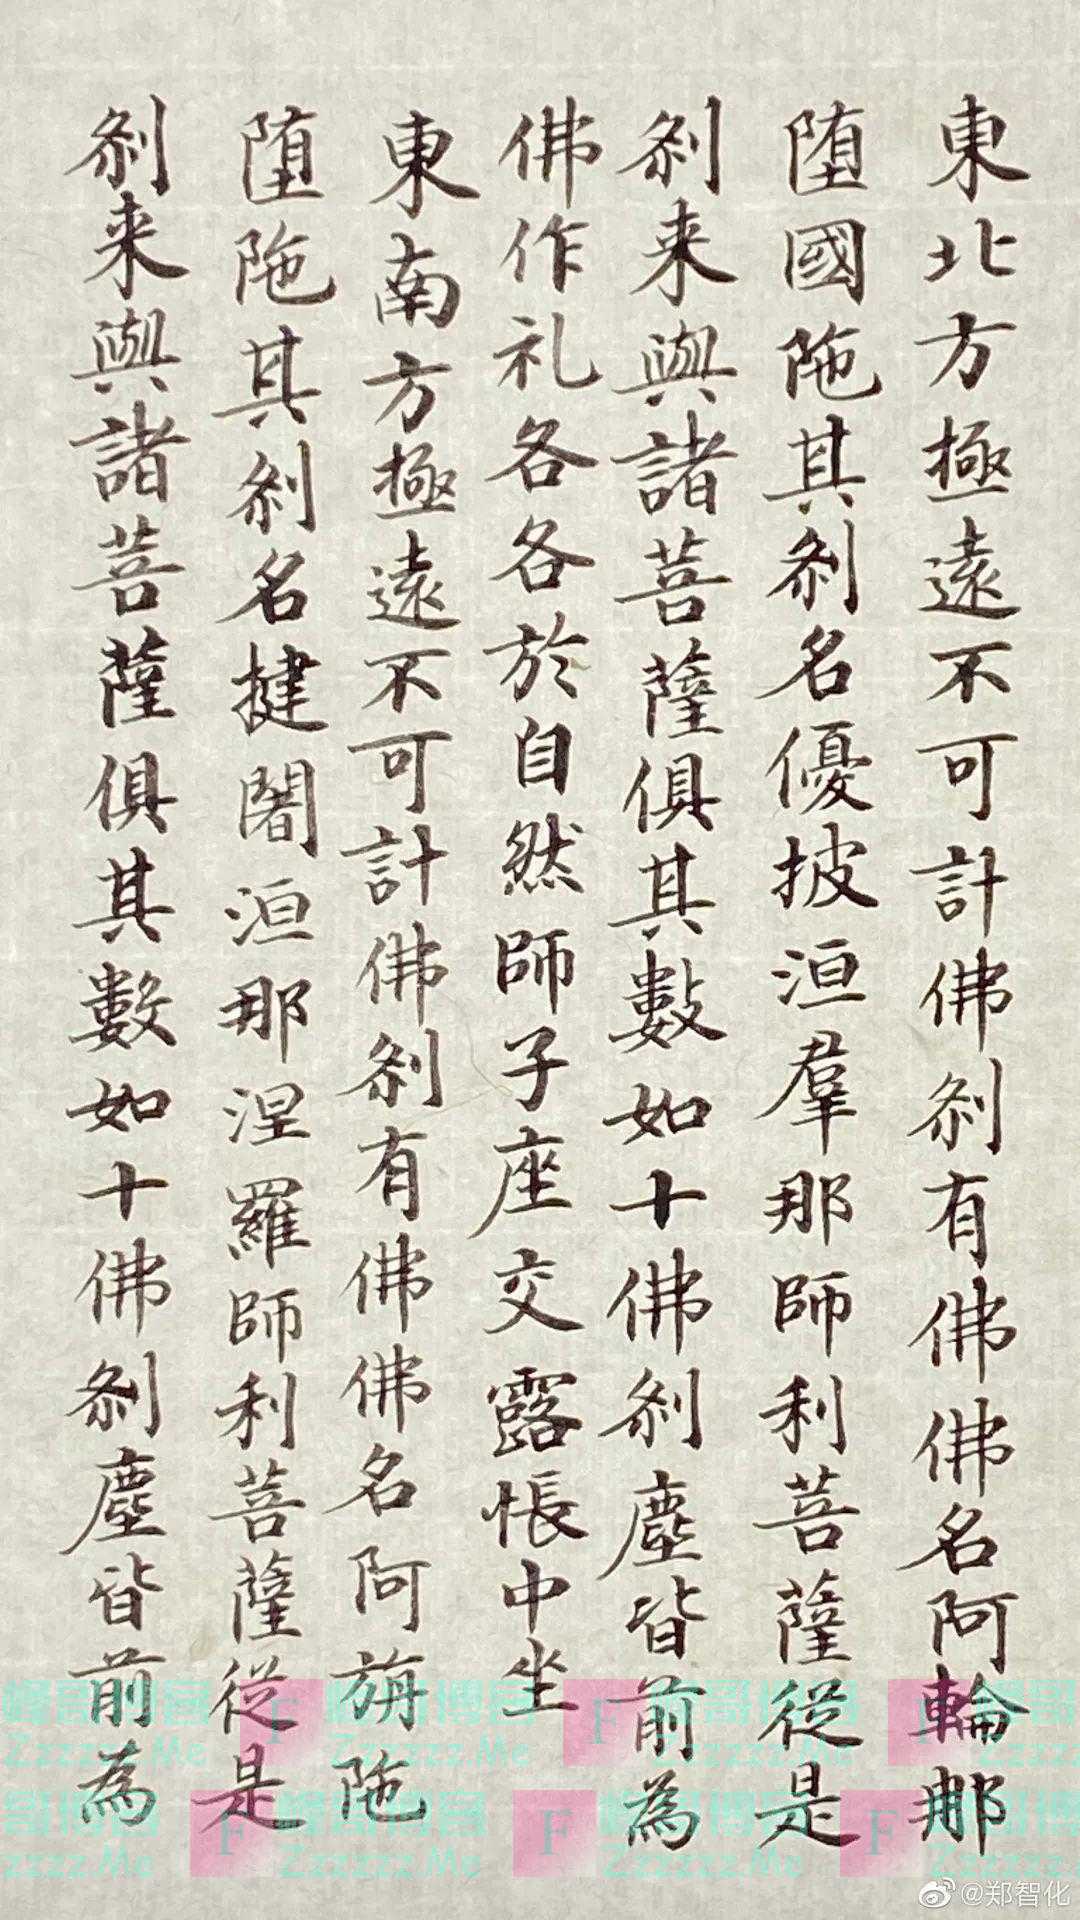 東北方極遠不可計佛剎有佛佛名阿輪那
堕國陁其剎名優披洹羣那師利菩薩從是
剎来與諸菩薩俱其數如十佛剎塵皆前為
佛作礼各各於自然師子座交露帳中坐
東南方極遠不可計佛剎有佛佛名阿旃陁
堕陁其剎名揵闍洹那涅羅師利菩薩從是
剎来與諸菩薩俱其數如十佛剎塵皆前為
@郑智化